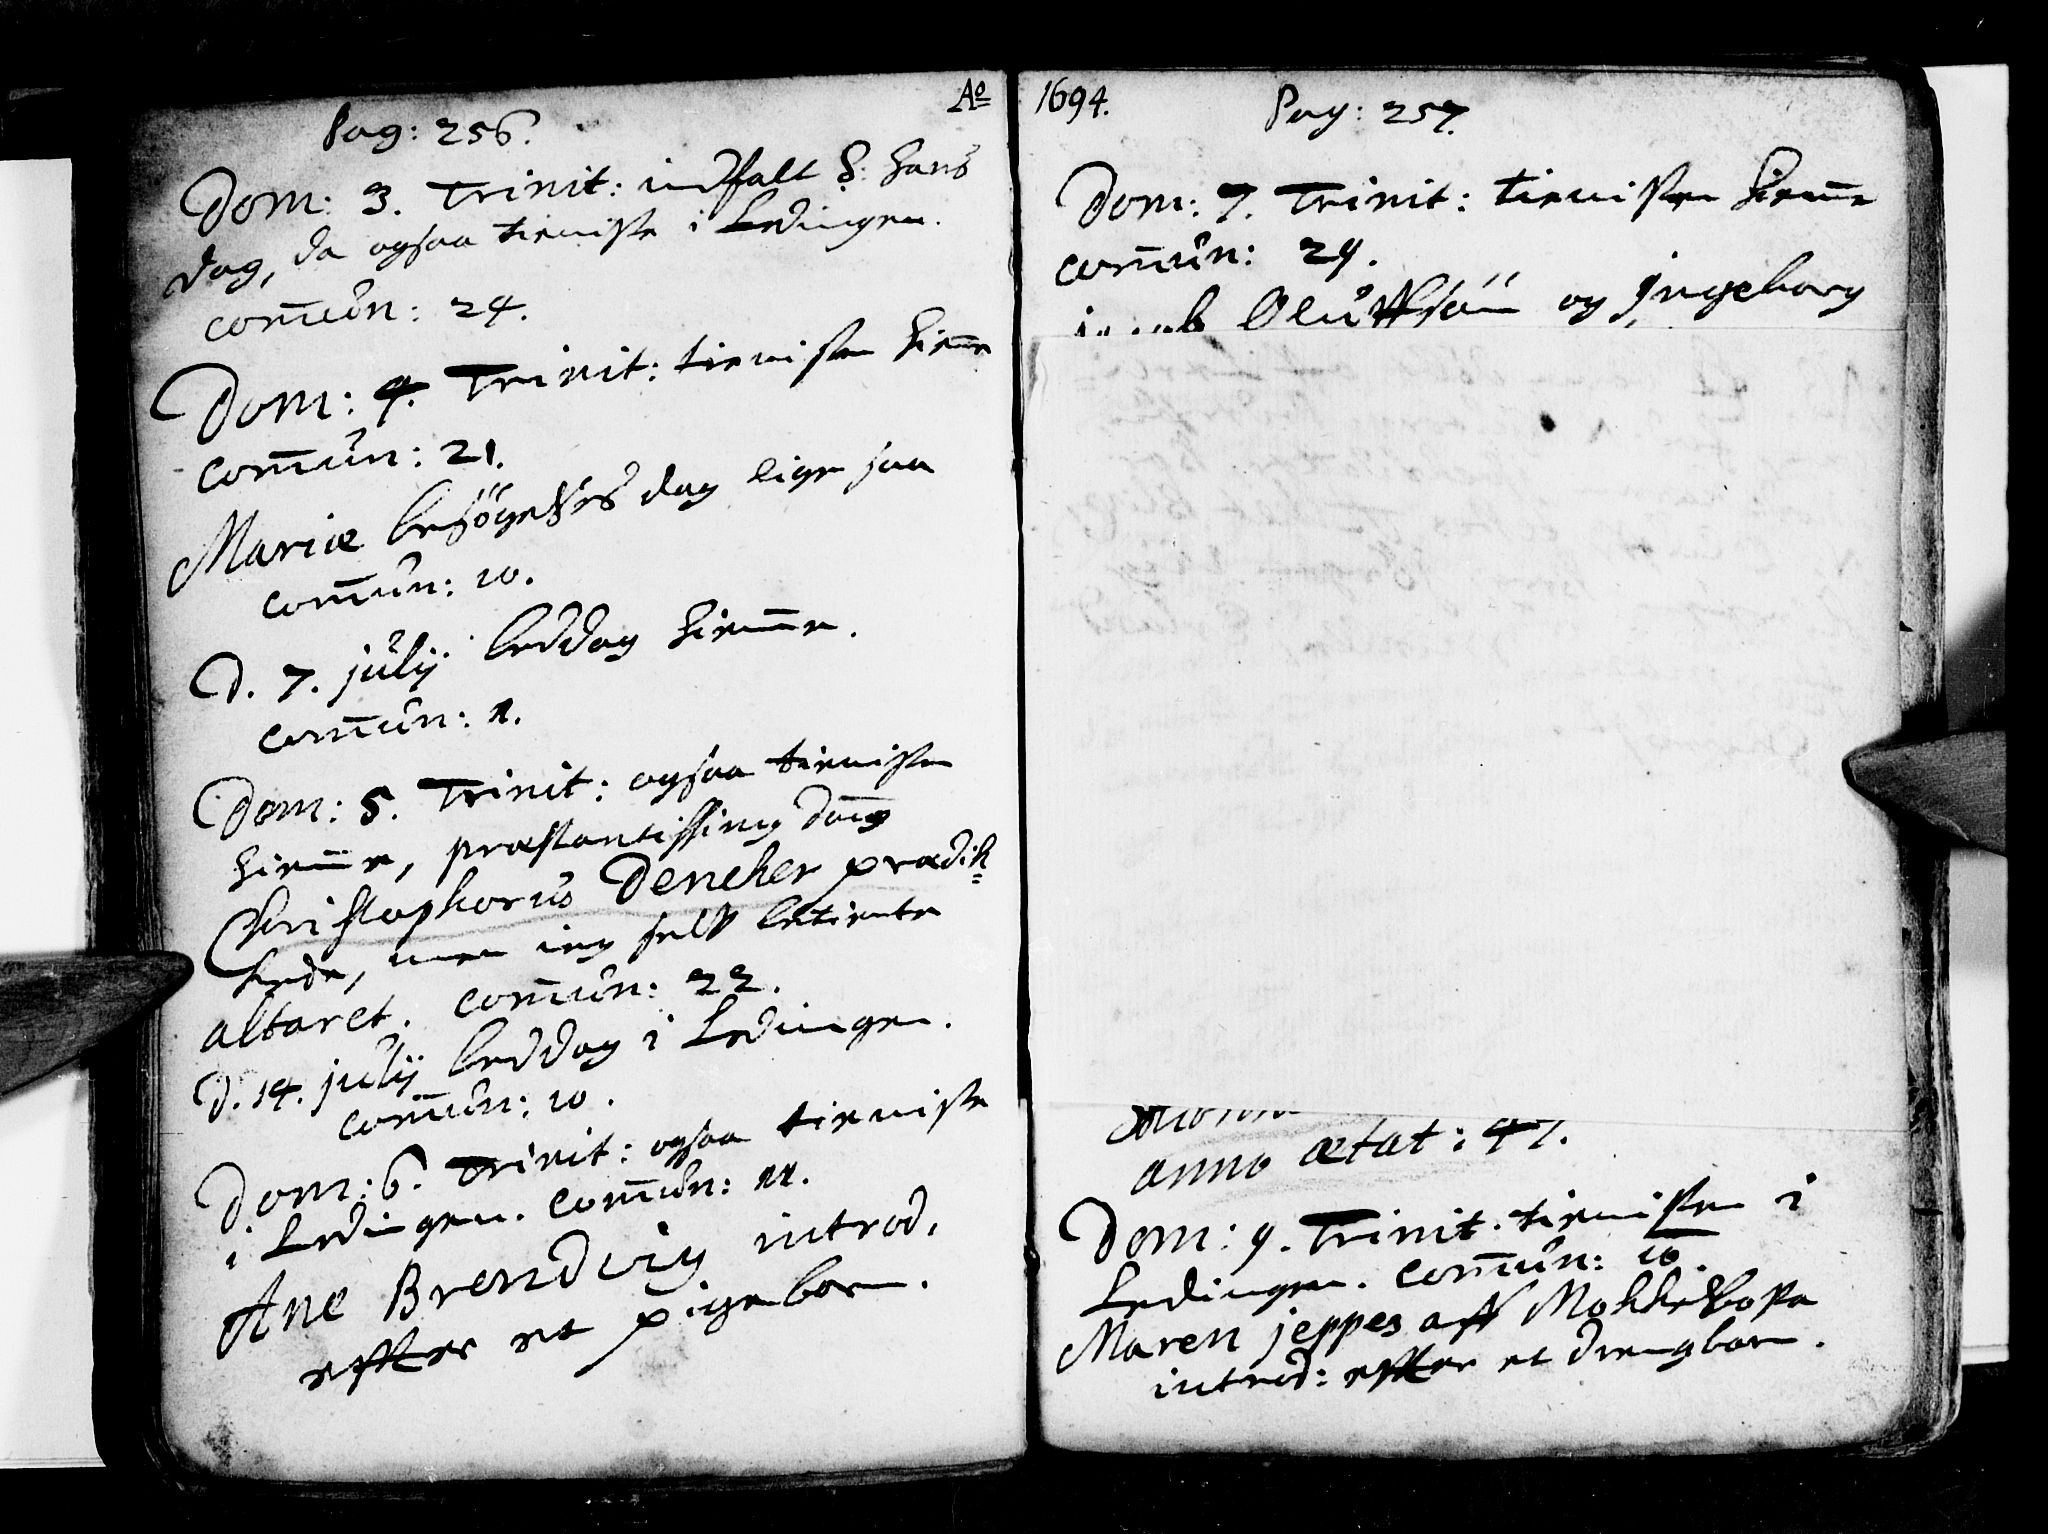 Pag: 256.
Aº
Dom: 3. Trinit: indfalt S: Hans
dag, da ogsaa tieniste i Ledingen.
com̄ůn: 24.
Dom: 4. Trinit: tienisten hiem̄e
com̄ůn: 21.
Mariæ besögelses dag lige saa
com̄ůn: 10.
D. 7. jůlij beddag hiem̄e.
com̄ůn: 1.
Dom: 5. Trinit: ogsaa tienisten
hiem̄e, præstantissimg
Christophorůs Dencker prædik=
kede, men ieg self betiente
altaret. com̄ůn: 22.
D. 14. jůlij beddag i Ledingen.
com̄ůn: 10.
Dom: 6. Trinit: ogsaa tieniste
i Ledingen. com̄ůn: 11.
Ane Brendvig introd.
effter et pigebarn.
1694.
Pag: 257.
Dom: 7. Trinit: tienisten hiem̄e
com̄ůn: 29.
Olůffsön og Jngeborg
anno ætat: 47.
Dom: 9. Trinit. tienisten i
Ledingen. com̄ůn: 10.
Maren jeppes aff
introd: effter et drengbarn.